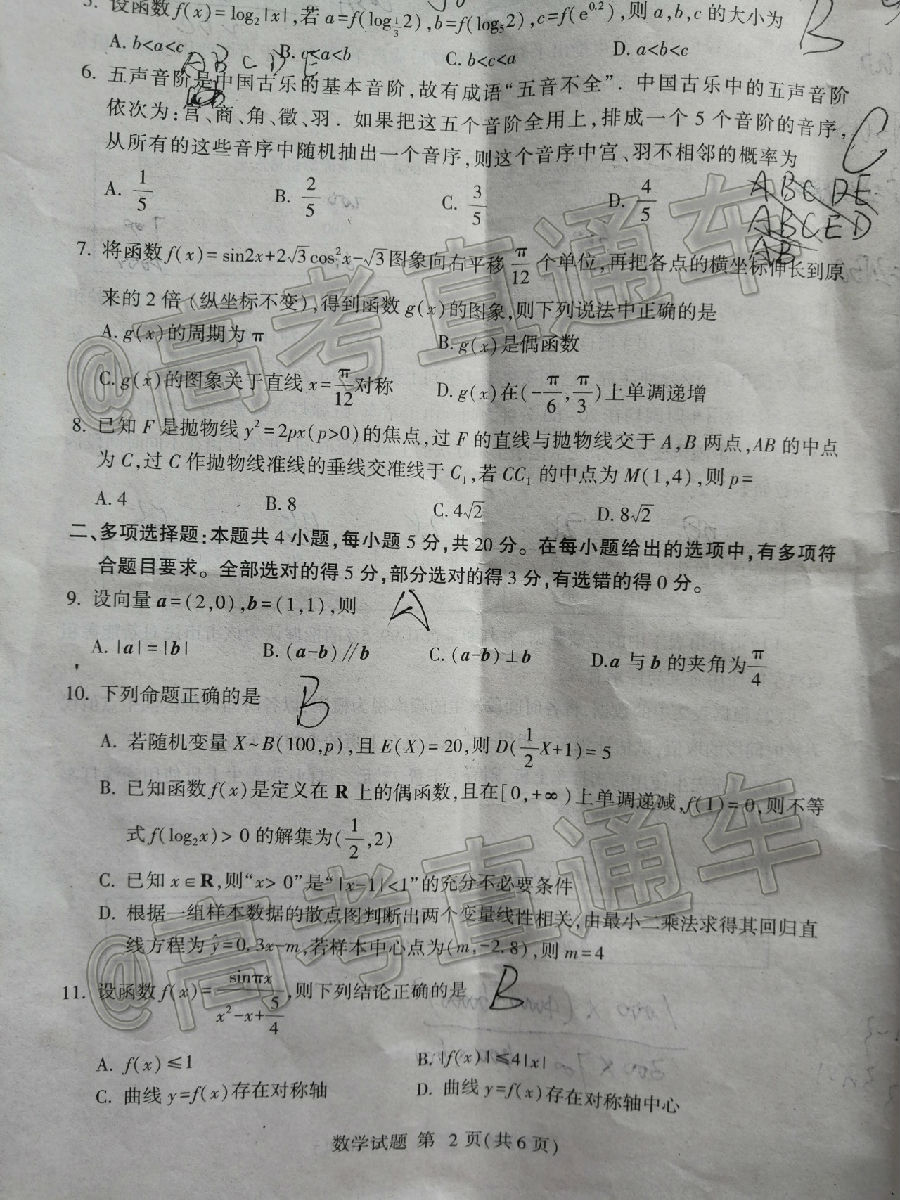 5. 设函数f(x)=log₂|x|,若 a=f(log_{1/3}2),b=f(log₅2),c=f(e^{0.2}),则 a,b,c 的大小为 B
A. b<a<c B. c<a<b C. b<c<a D. a<b<c
A B C D E
6. 五声音阶是中国古乐的基本音阶,故有成语“五音不全”. 中国古乐中的五声音阶
依次为:宫、商、角、徵、羽. 如果把这五个音阶全用上,排成一个 5 个音阶的音序,
从所有的这些音序中随机抽出一个音序,则这个音序中宫、羽不相邻的概率为 C
A. 1/5 B. 2/5 C. 3/5 D. 4/5
ABCDE
ABCED
AB
7. 将函数 f(x)=sin2x+2√3cos²x-√3图象向右平移 π/12 个单位,再把各点的横坐标伸长到原
来的 2 倍(纵坐标不变),得到函数 g(x)的图象,则下列说法中正确的是
A. g(x)的周期为 π B. g(x)是偶函数
C. g(x)的图象关于直线 x=π/12对称 D. g(x)在(-π/6,π/3)上单调递增
8. 已知 F 是抛物线 y²=2px(p>0)的焦点,过 F 的直线与抛物线交于 A,B 两点,AB 的中点
为 C,过 C 作抛物线准线的垂线交准线于 C₁,若 CC₁ 的中点为 M(1,4),则 p=
A. 4 B. 8 C. 4√2 D. 8√2
二、多项选择题:本题共 4 小题,每小题 5 分,共 20 分。在每小题给出的选项中,有多项符
合题目要求。全部选对的得 5 分,部分选对的得 3 分,有选错的得 0 分。
9. 设向量 a=(2,0),b=(1,1),则 A
A. |a|=|b| B. (a-b)∥b C. (a-b)⊥b D.a 与 b 的夹角为π/4
10. 下列命题正确的是 B
A. 若随机变量 X~B(100,p),且 E(X)=20,则 D(1/2X+1)=5
B. 已知函数 f(x)是定义在 R 上的偶函数,且在[0,+∞)上单调递减,f(1)=0,则不等
式 f(log₂x)>0 的解集为(1/2,2)
C. 已知 x∈R,则“x>0”是“|x-1|<1”的充分不必要条件
D. 根据一组样本数据的散点图判断出两个变量线性相关,由最小二乘法求得其回归直
线方程为 ŷ=0.3x-m,若样本中心点为(m,-2.8),则 m=4
11. 设函数 f(x)=sinπx/(x²-x+5/4),则下列结论正确的是 B
A. f(x)≤1 B. |f(x)|≤4|x|
C. 曲线 y=f(x)存在对称轴 D. 曲线 y=f(x)存在对称轴中心
数学试题 第 2 页(共6页)
@高考直通车
@高考直通车